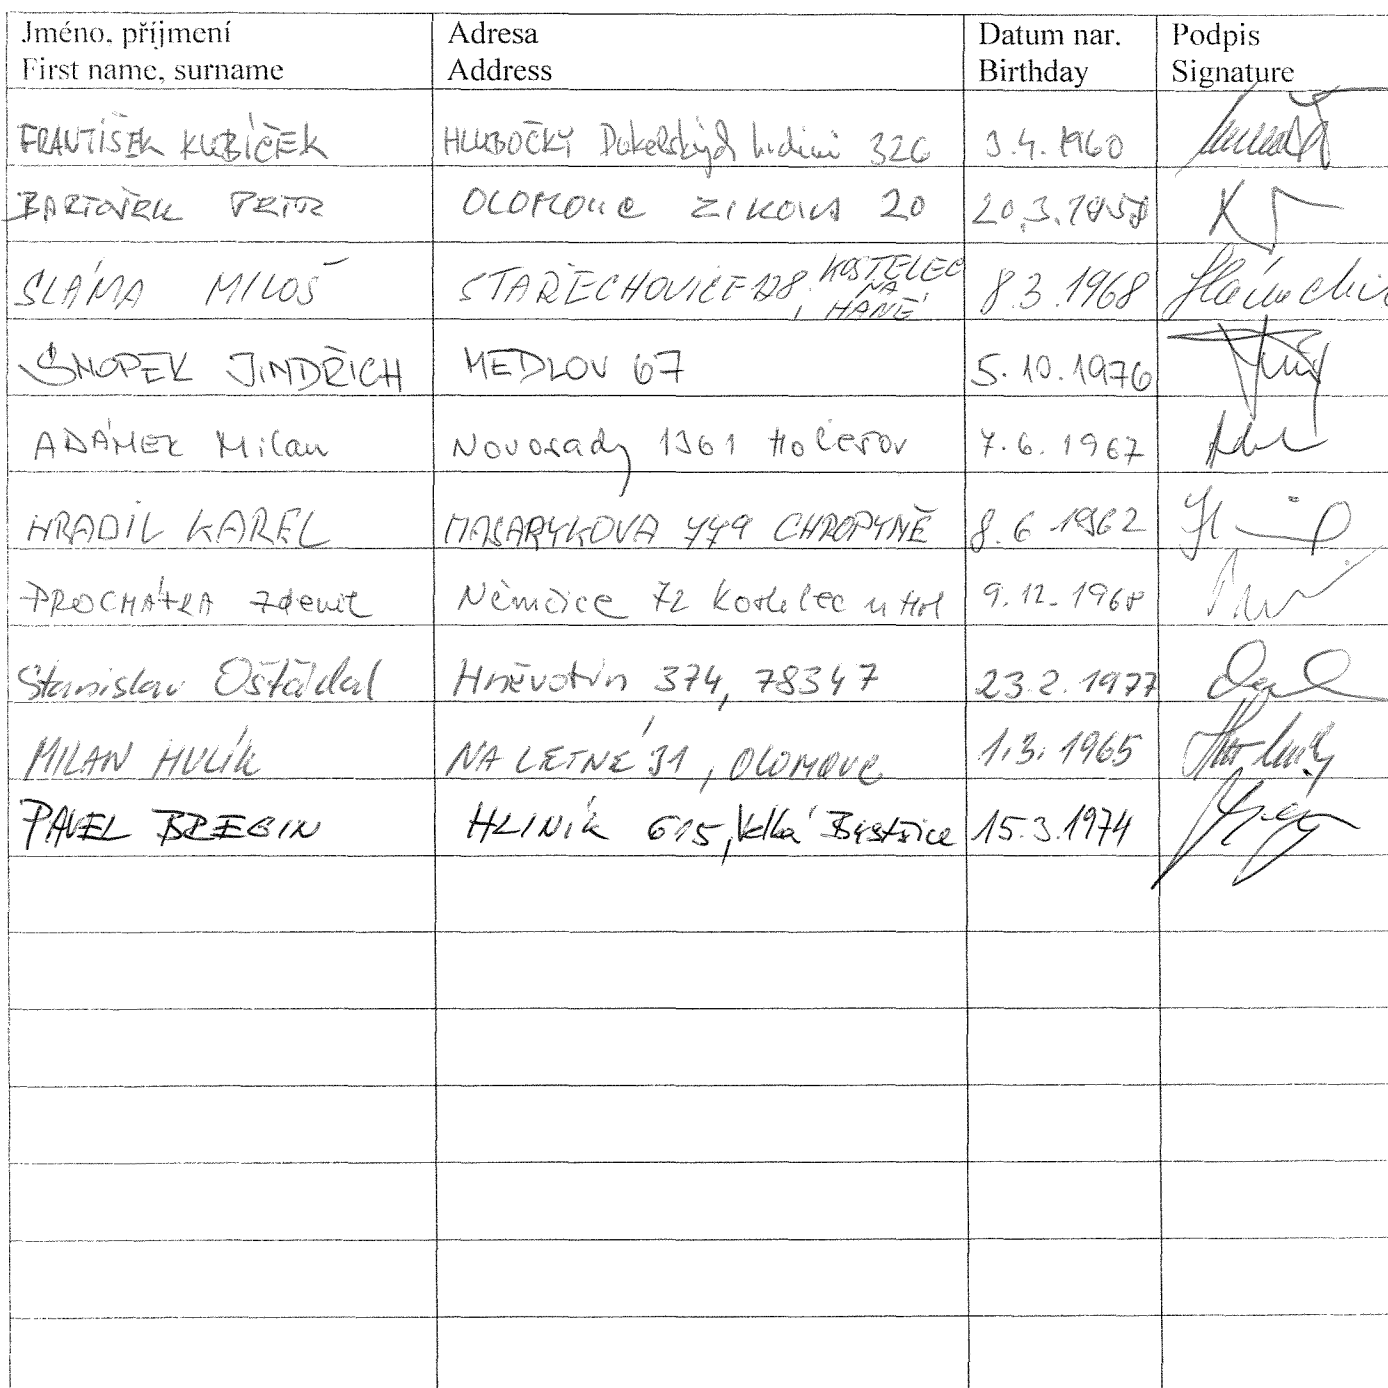 Jméno, příjmení Adresa Datum nar. Podpis
First name, surname Address Birthday Signature
FRANTIŠEK KUBÍČEK HLUBOČKY Dukelských hrdinů 326 3.4.1960
BARTOŠEK PETR OLOMOUC ZIKOVA 20 20.3.1958
SLÁMA MILOŠ STAŘECHOVICE 128, KOSTELEC NA HANÉ 8.3.1968
SNOPEK JINDŘICH MEDLOV 67 5.10.1976
ADÁMEK Milan Novosady 1361 Holešov 7.6.1967
HRADIL KAREL MASARYKOVA 779 CHROPYNĚ 8.6 1962
PROCHÁZKA Zdeněk Němčice 72 Kostelec u Hol 9.12.1968
Stanislav Ošťádal Hněvotín 374, 78347 23.2.1977
MILAN HULÍK NA LETNÉ 31, OLOMOUC 1.3.1965
PAVEL BŘEZIN HLINÍK 615, Velká Bystřice 15.3.1974